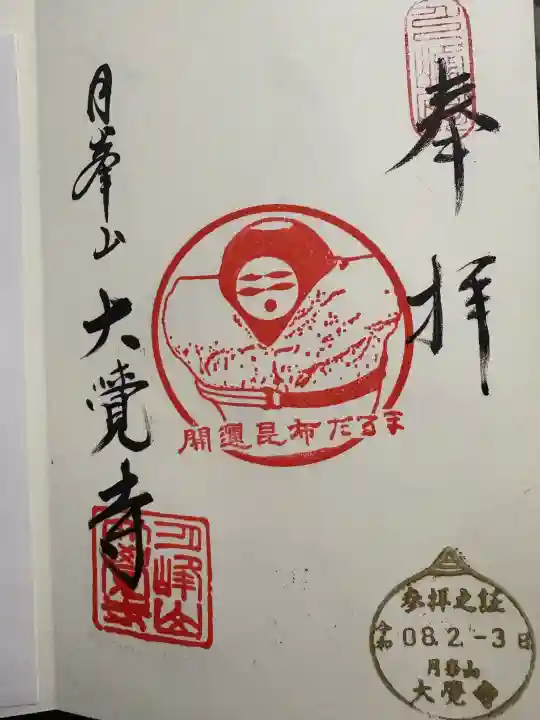 奉拝
開運昆布だるま
月峯山 大覺寺
月峰山
参拝之証
令和 08.2.-3 日
月峯山
大覺寺